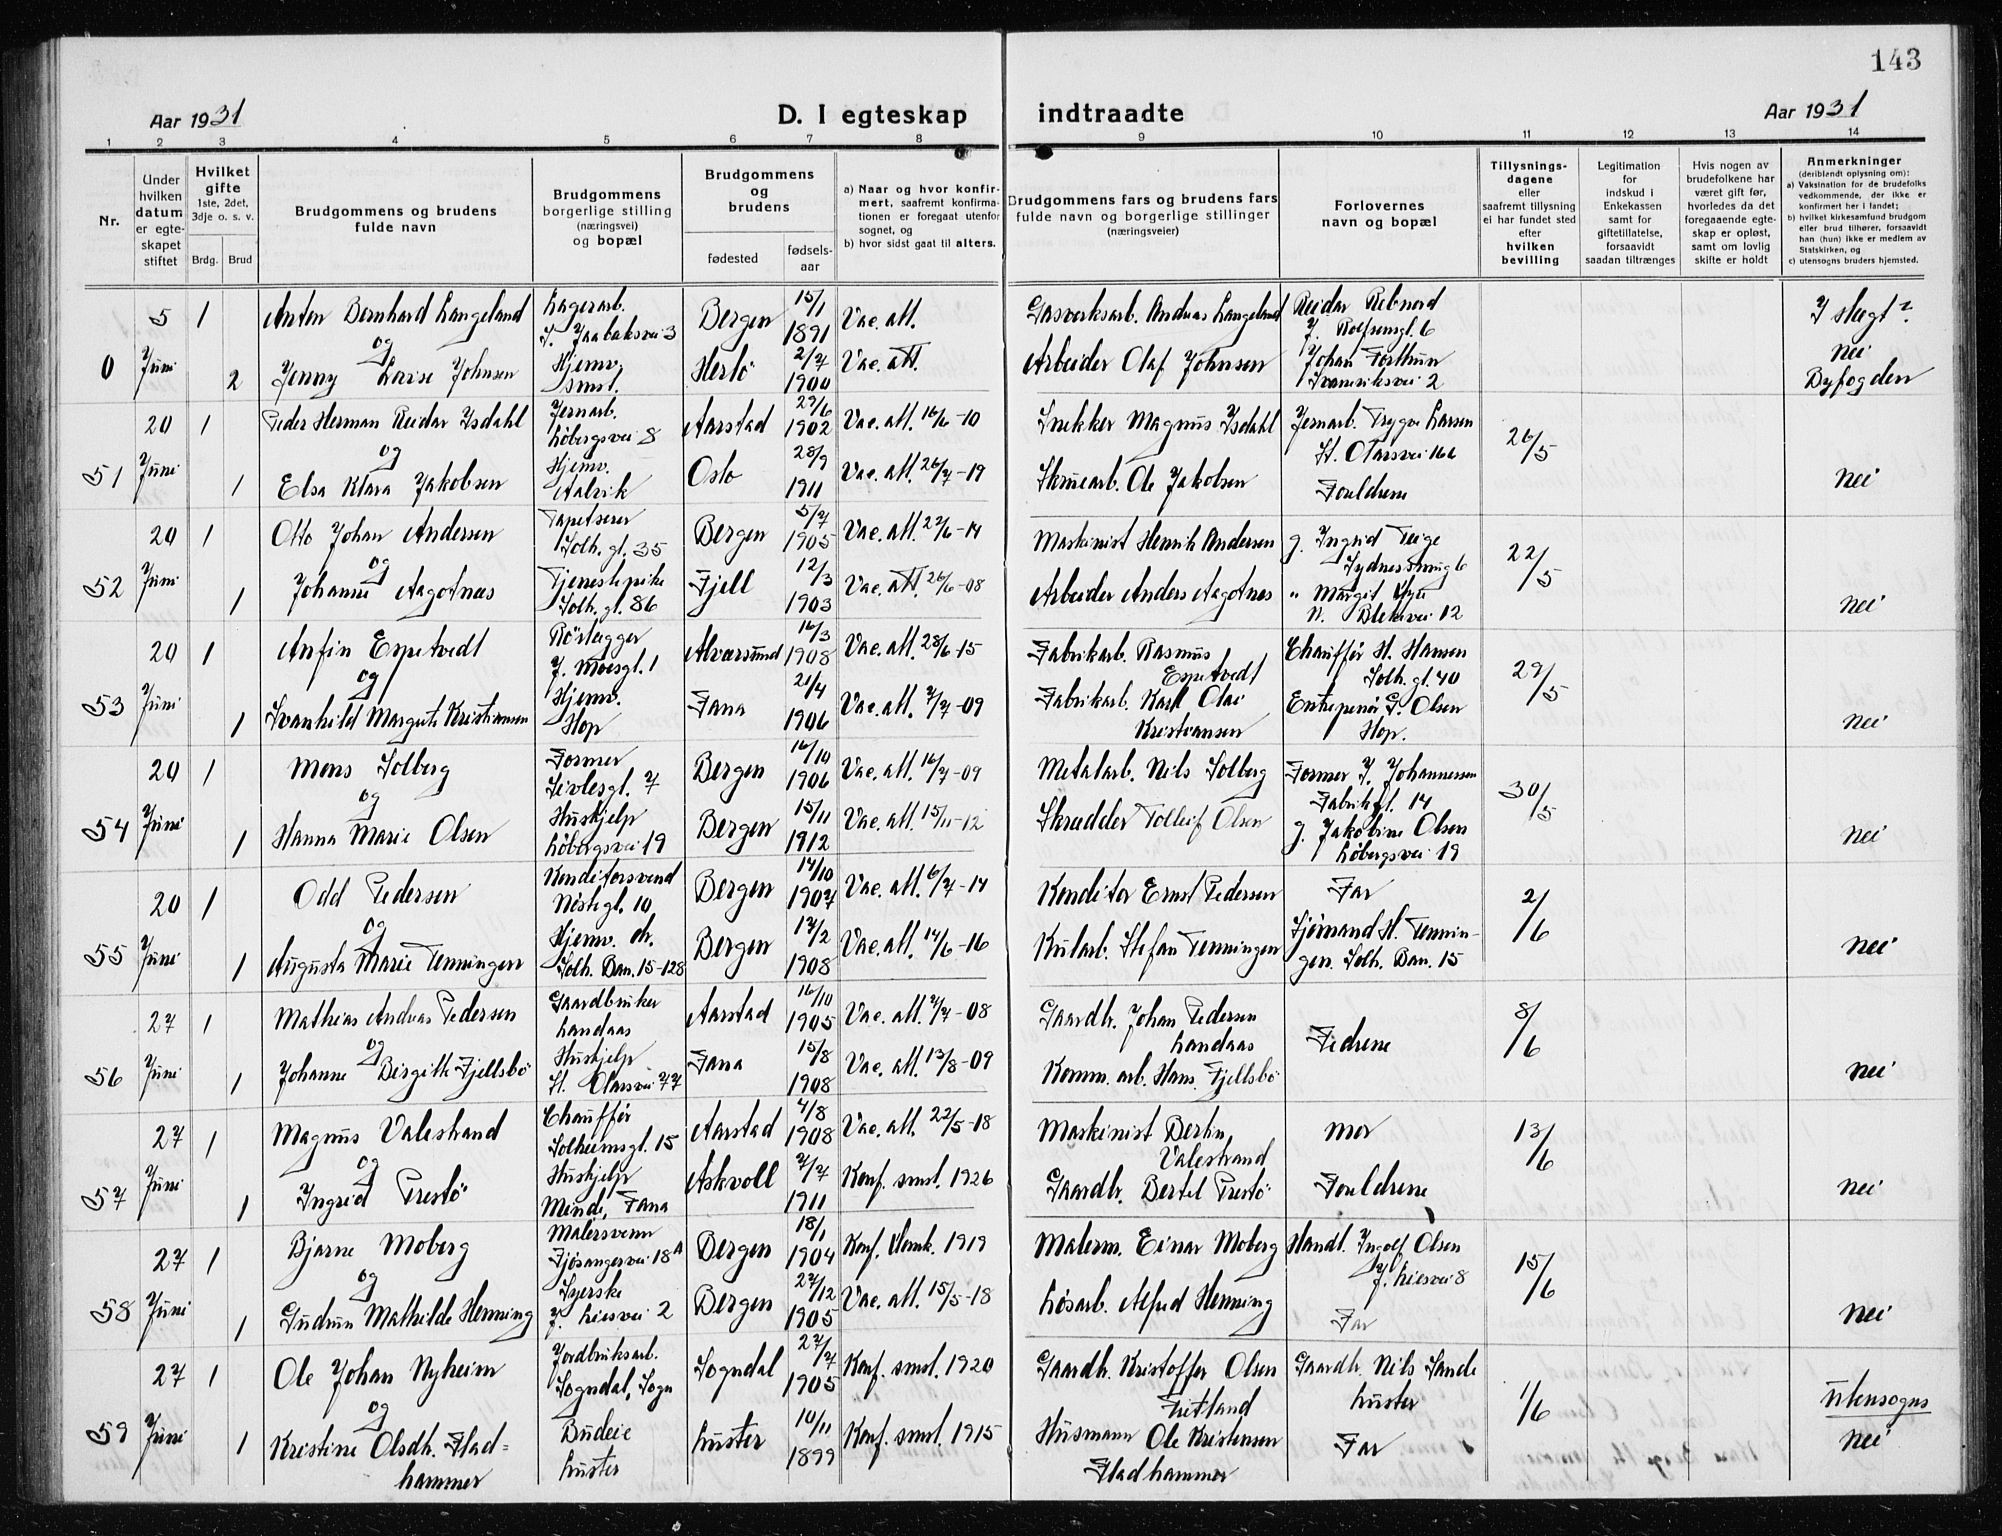 143
Aar 1931
D. I egteskap indtraadte
Aar 1931
1 2 3 4 5 6 7 8 9 10 11 12 13 14
Nr.
Under hvilken datum er egteskapet stiftet
Hvilket gifte
1ste, 2det, 3dje o. s. v.
Brdg. Brud
Brudgommens og brudens fulde navn
Brudgommens borgerlige stilling (næringsvei) og bopæl
Brudgommens og brudens
fødested
fødselsaar
a) Naar og hvor konfirmert, saafremt konfirmationen er foregaat utenfor sognet, og
b) hvor sidst gaat til alters.
Brudgommens fars og brudens fars fulde navn og borgerlige stillinger (næringsveier)
Forlovernes navn og bopæl
Tillysningsdagene eller saafremt tillysning ei har fundet sted efter hvilken bevilling
Legitimation for indskud i Enkekassen samt for giftetillatelse, forsaavidt saadan tiltrænges
Hvis nogen av brudefolkene har været gift før, hvorledes da det foregaaende egteskap er opløst, samt om lovlig skifte er holdt
Anmerkninger (deriblandt oplysning om):
a) Vaksination for de brudefolks vedkommende, der ikke er konfirmert her i landet;
b) hvilket kirkesamfund brudgom eller brud tilhører, forsaavidt han (hun) ikke er medlem av Statskirken, og
c) utensogns bruders hjemsted.
5 1 Anton Bernhard Langeland Lagerarb. 3 Bergen 15/1 1891 Vac. att. Gasverksarb. Andreas Langeland Reidar 6 I slegt?
og
0 Juni 2 Jenny Lovise Johnsen Hjemv. smst. Herlö 2/7 1900 Vac. att. Arbeider Olaf Johnsen Johan Forthun 2 nei Byfogden
20 1 Peder Herman Reidar Isdahl Jernarb. Løbergsvei 8 Aarstad 27/6 1902 Vac. att. 16/6-10 Snekker Magnus Isdahl Jernarb. Trygve Larsen St. Olavsvei 16a 26/5
og
51 Juni 1 Elsa Klara Jakobsen Hjemv. Aalvik Oslo 28/9 1911 Vac. att. 26/7-19 Skruearb. Ole Jakobsen Foreldrene nei
20 1 Otto Johan Andersen Tapetserer Solh. gt. 35 Bergen 5/7 1905 Vac. att. 27/6-14 Maskinist Henrik Andersen g. Ingrid Teige 22/5
og
52 Juni 1 Johanne Aagotnes Tjenestepike Solh. gt. 86 Fjell 12/3 1903 Vac. att. 26/6-08 Arbeider Anders Aagotnes " Margit N. Blekevei 12 nei
20 1 Anfin Espetvedt Rörlegger J. Moesgt. 1 Alversund 16/3 1908 Vac. att. 28/6-15 Fabrikarb. Rasmus Espetvedt Chauffør H. Hansen Solh. gt. 40 29/5
og
53 Juni 1 Svanhild Margrete Kristiansen Hjemv. Hop Fana 21/4 1906 Vac. att. 2/7-09 Fabrikarb. Karl Olai Kristiansen Entrepenør G. Olsen Hop. nei
20 1 Mons Solberg Former Sivlesgt. 7 Bergen 16/10 1906 Vac. att. 16/7-09 Metalarb. Nils Solberg Former J. Johannesen Fabrikgt. 14 30/5
og
54 Juni 1 Hanna Marie Olsen Hushjelp Løbergsvei 19 Bergen 15/11 1912 Vac. att. 15/11-12 Skredder Tolleif Olsen g. Jakobine Olsen Løbergsvei 19 nei
20 1 Odd Pedersen Konditorsvend Nöstegt. 10 Bergen 14/10 1907 Vac. att. 6/7-14 Konditor Ernst Pedersen Far 2/6
og
55 Juni 1 Augusta Marie Tenningen Hjemv. dr. Solh. Ban. 15-128 Bergen 12/2 1908 Vac. att. 14/6-16 Kularb. Stefan Tenningen Sjømand H. Tenningen. Solh. Ban. 15 nei
27 1 Mathias Andreas Pedersen Gaardbruker Landaas Aarstad 16/10 1905 Vac. att. 2/7-08 Gaardb. Johan Pedersen Landaas Fedrene 8/6
og
56 Juni 1 Johanne Birgitte Fjellsbö Hushjelp St. Olavsvei 77 Fana 15/8 1908 Vac. att. 13/8-09 Komm. arb. Hans Fjellsbö nei
27 1 Magnus Valestrand Chauffør Solheimsgt. 15 Aarstad 4/8 1908 Vac. att. 22/5-18 Maskinist Bertin Valestrand Mor 13/6
og
57 Juni 1 Ingrid Prestö Hushjelp Minde, Fana Askvoll 2/7 1911 Konf. smst. 1926 Gaardb. Bertel Prestö Foreldrene nei
27 1 Bjarne Moberg Malersvenn Fjøsangervei 18A Bergen 18/1 1904 Konf. Domk. 1919 Malerm. Einar Moberg Handl. Ingolf Olsen J. Liesvei 8 15/6
og
58 Juni 1 Gudrun Mathilde Henning Syerske J. Liesvei 2 Bergen 27/12 1905 Vac. att. 15/5-18 Løsarb. Alfred Henning Far nei
27 1 Ole Johan Nyheim Jordbruksarb. Sogndal, Sogn Sogndal 27/7 1905 Konf. smst. 1920 Gaardb. Kristoffer Olsen Fretland Gaardb. Nils Sande Luster 1/6 Utensogns
og
59 Juni 1 Kristine Olsdtr. Fladhammer Budeie Luster Luster 10/11 1899 Konf. smst. 1915 Husmann Ole Kristensen Fladhammer Far nei